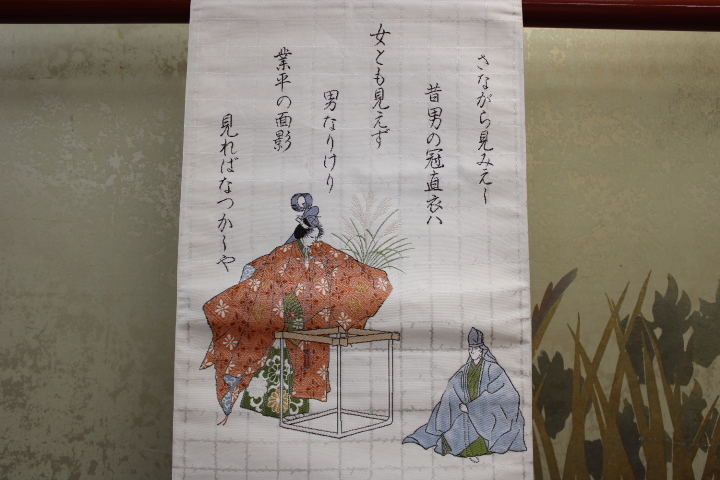 さながら見みえし
昔男の冠直衣ハ
女とも見えず
男なりけり
業平の面影
見ればなつかしや